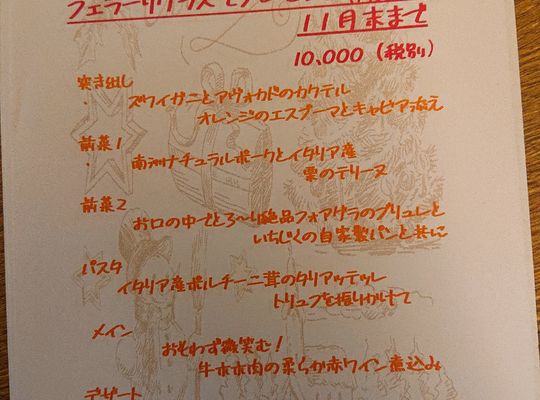 フェラーリグラス
11月末まで
10,000（税別）
突き出し
・ズワイガニとアヴォカドのカクテル
オレンジのエスプーマとキャビア添え
前菜1
・南洲ナチュラルポークとイタリア産
栗のテリーヌ
前菜2
お口の中でとろ〜り絶品フォアグラのブリュレと
いちじくの自家製パンと共に
パスタ
イタリア産ポルチーニ茸のタリアッテッレ
トリュフを振りかけて
メイン
おもわず微笑む！
牛ホホ肉の柔らか赤ワイン煮込み
デザート